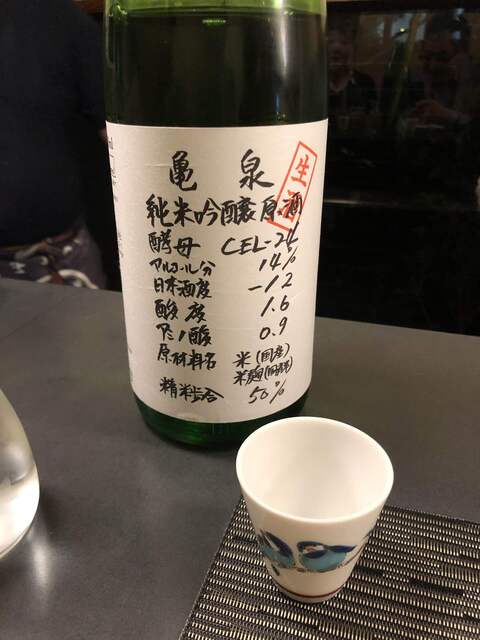 亀泉
生酒
純米吟醸原酒
酵母 CEL-24
アルコール分 14%
日本酒度 -12
酸度 1.6
アミノ酸 0.9
原材料名 米(国産)
米麹(国産米)
精米歩合 50%